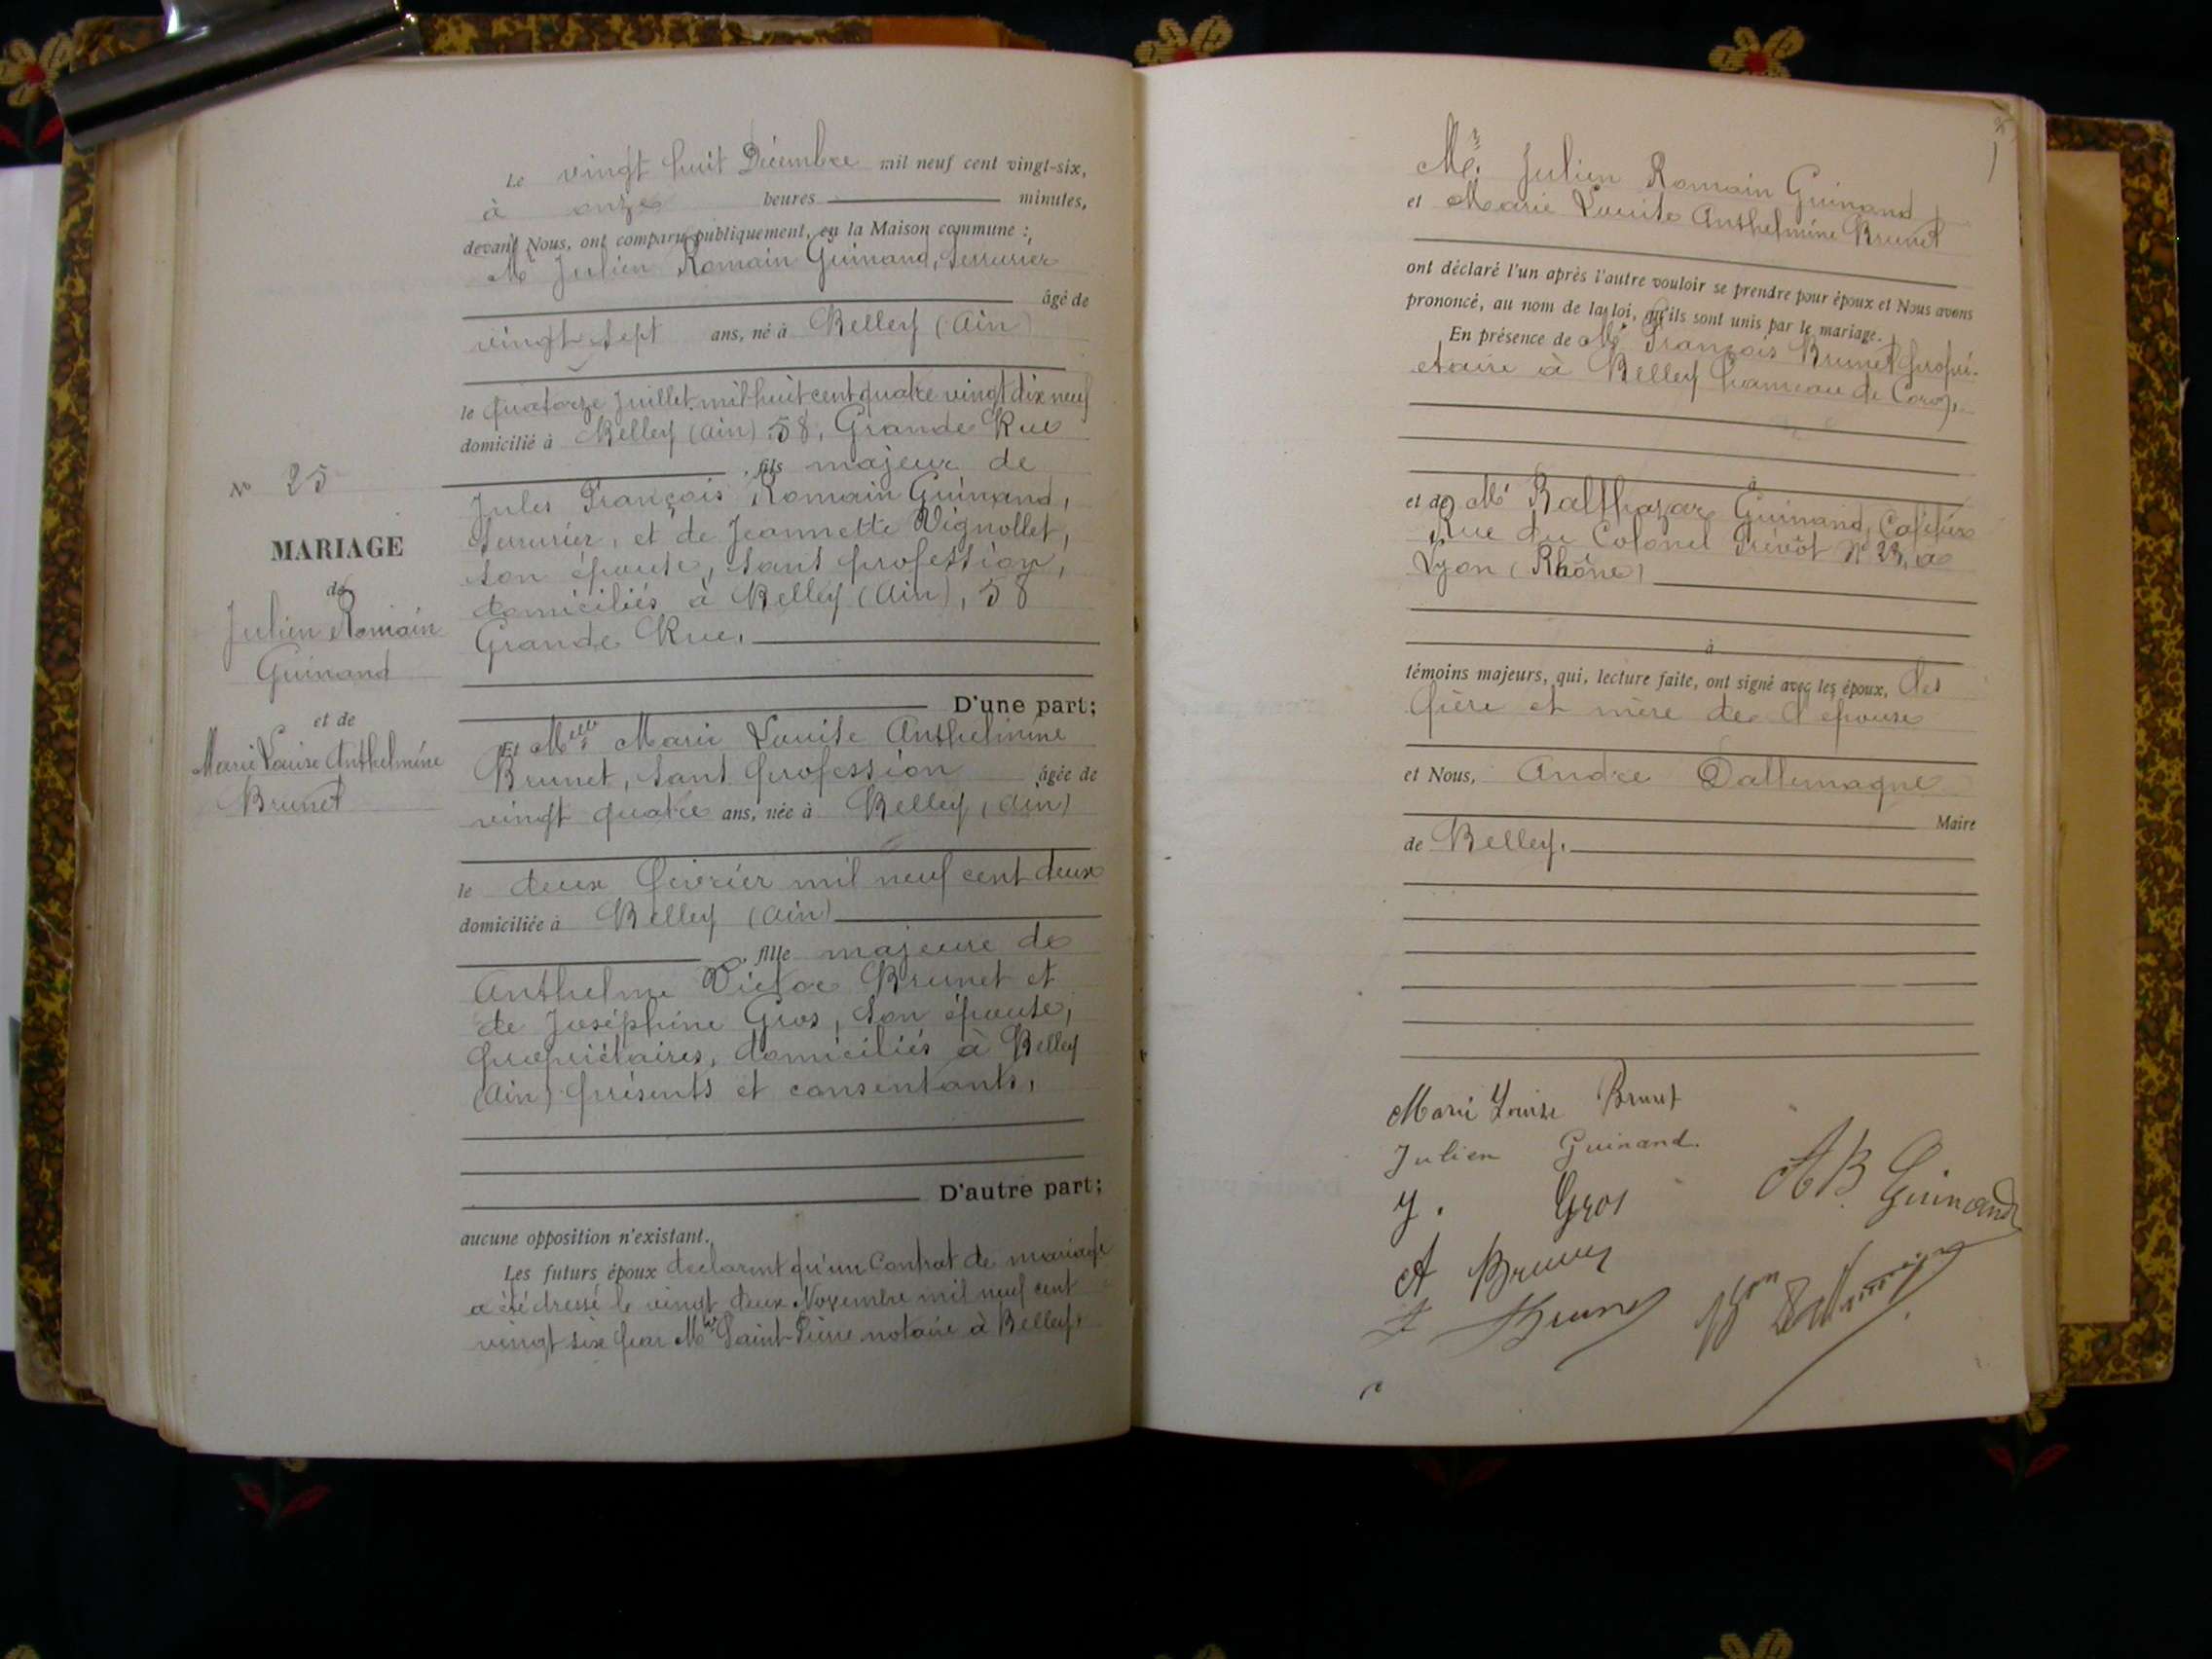 N° 25
MARIAGE
de
Julien Romain
Guinand
et de
Marie Louise Anthelmine
Brunet
Le vingt huit Décembre mil neuf cent vingt-six,
à onze heures minutes,
devant Nous, ont comparu publiquement, en la Maison commune :
Mr Julien Romain Guinand, serrurier
âgé de
vingt sept ans, né à Belley (Ain)
le quatorze Juillet mil huit cent quatre vingt dix neuf
domicilié à Belley (Ain) 58, Grande Rue
, fils majeur de
Jules François Romain Guinand,
serrurier, et de Jeannette Vignollet,
son épouse, sans profession,
domiciliés à Belley (Ain), 58
Grande Rue.
D'une part;
Et Melle Marie Louise Anthelmine
Brunet, sans profession âgée de
vingt quatre ans, née à Belley, (Ain)
le deux février mil neuf cent deux
domiciliée à Belley (Ain)
, fille majeure de
Anthelme Victor Brunet et
de Joséphine Gros, son épouse,
propriétaires, domiciliés à Belley
(Ain) présents et consentants,
D'autre part;
aucune opposition n'existant.
Les futurs époux déclarent qu'un Contrat de mariage
a été dressé le vingt deux Novembre mil neuf cent
vingt six par Me Saint-Pierre notaire à Belley.
Mr. Julien Romain Guinand
et Marie Louise Anthelmine Brunet
ont déclaré l'un après l'autre vouloir se prendre pour époux et Nous avons
prononcé, au nom de la loi, qu'ils sont unis par le mariage.
En présence de Mr François Brunet propri-
étaire à Belley hameau de
à
et de Mr Balthazar Guinand, Cafetier
Rue du Colonel Prévôt N° 23, à
Lyon (Rhône)
à
témoins majeurs, qui, lecture faite, ont signé avec les époux, les
père et mère de l'épouse
et Nous, André Dallemagne
Maire
de Belley.
Marie Louise Brunet
Julien Guinand.
J. Gros
AB Guinand
A Brunet
F Brunet
Bon Dallemagne